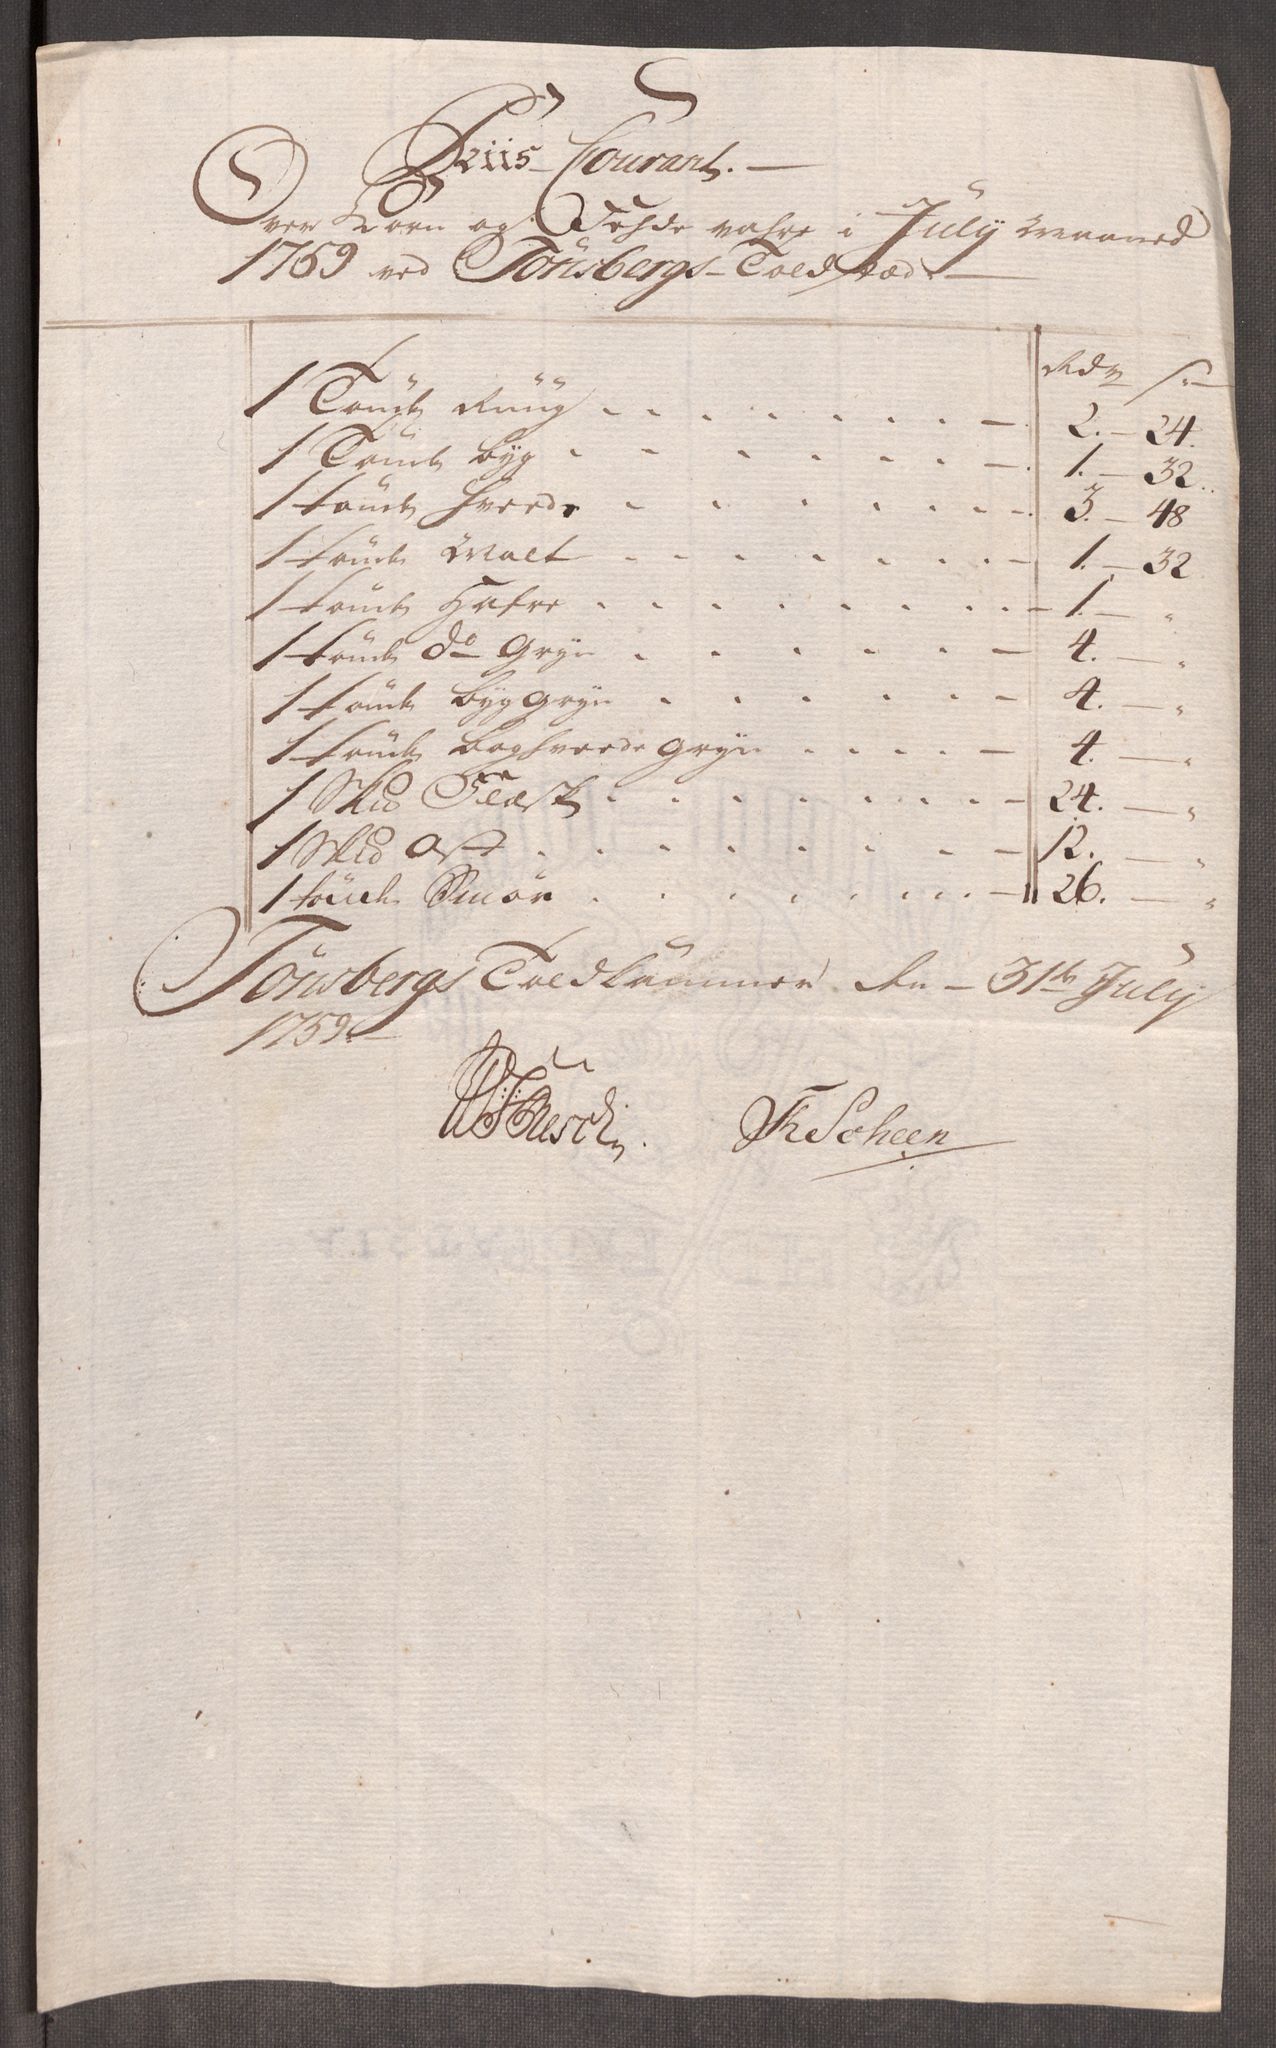 Priis Courant.
Over Korn og Fehde vahre i July Maaned
1759 ved Tönsbergs Toldstæd
Rdr s
1 Tönde Rüüg 2. 24.
1 Tönde byg 1. 32.
1 tönde hvede 3. 48
1 tönde Malt 1. 32
1 tönde Hafre 1. "
1 tönde do Gryn 4. "
1 tönde byg gryn 4. "
1 tönde boghvede gryn 4. "
1 Skd Flæsk 24. "
1 Skd Ost 12. "
1 tönde Smör 26. "
Tönsbergs Toldkammer den 31te July
1759
FR Scheen